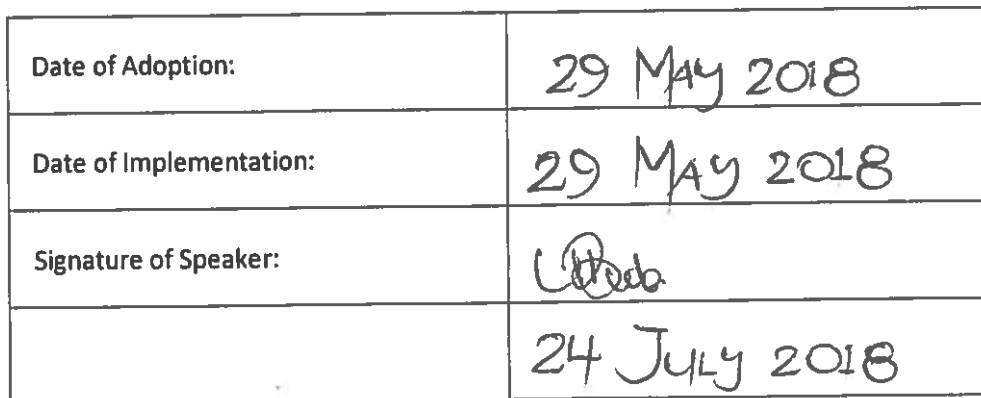 Date of Adoption: 29 MAY 2018
Date of Implementation: 29 MAY 2018
Signature of Speaker:
24 JULY 2018